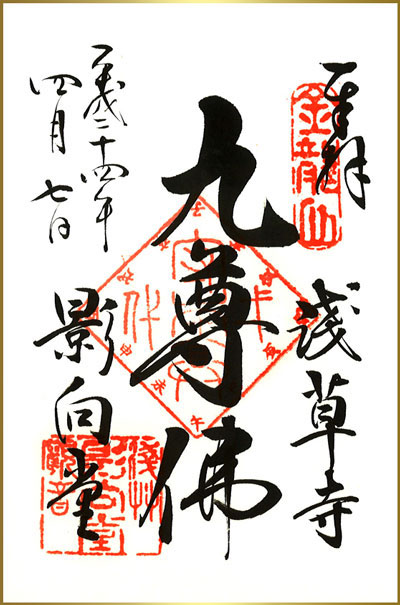 奉拝
金龍山
浅草寺
九尊佛
影向堂
平成二十四年
四月七日